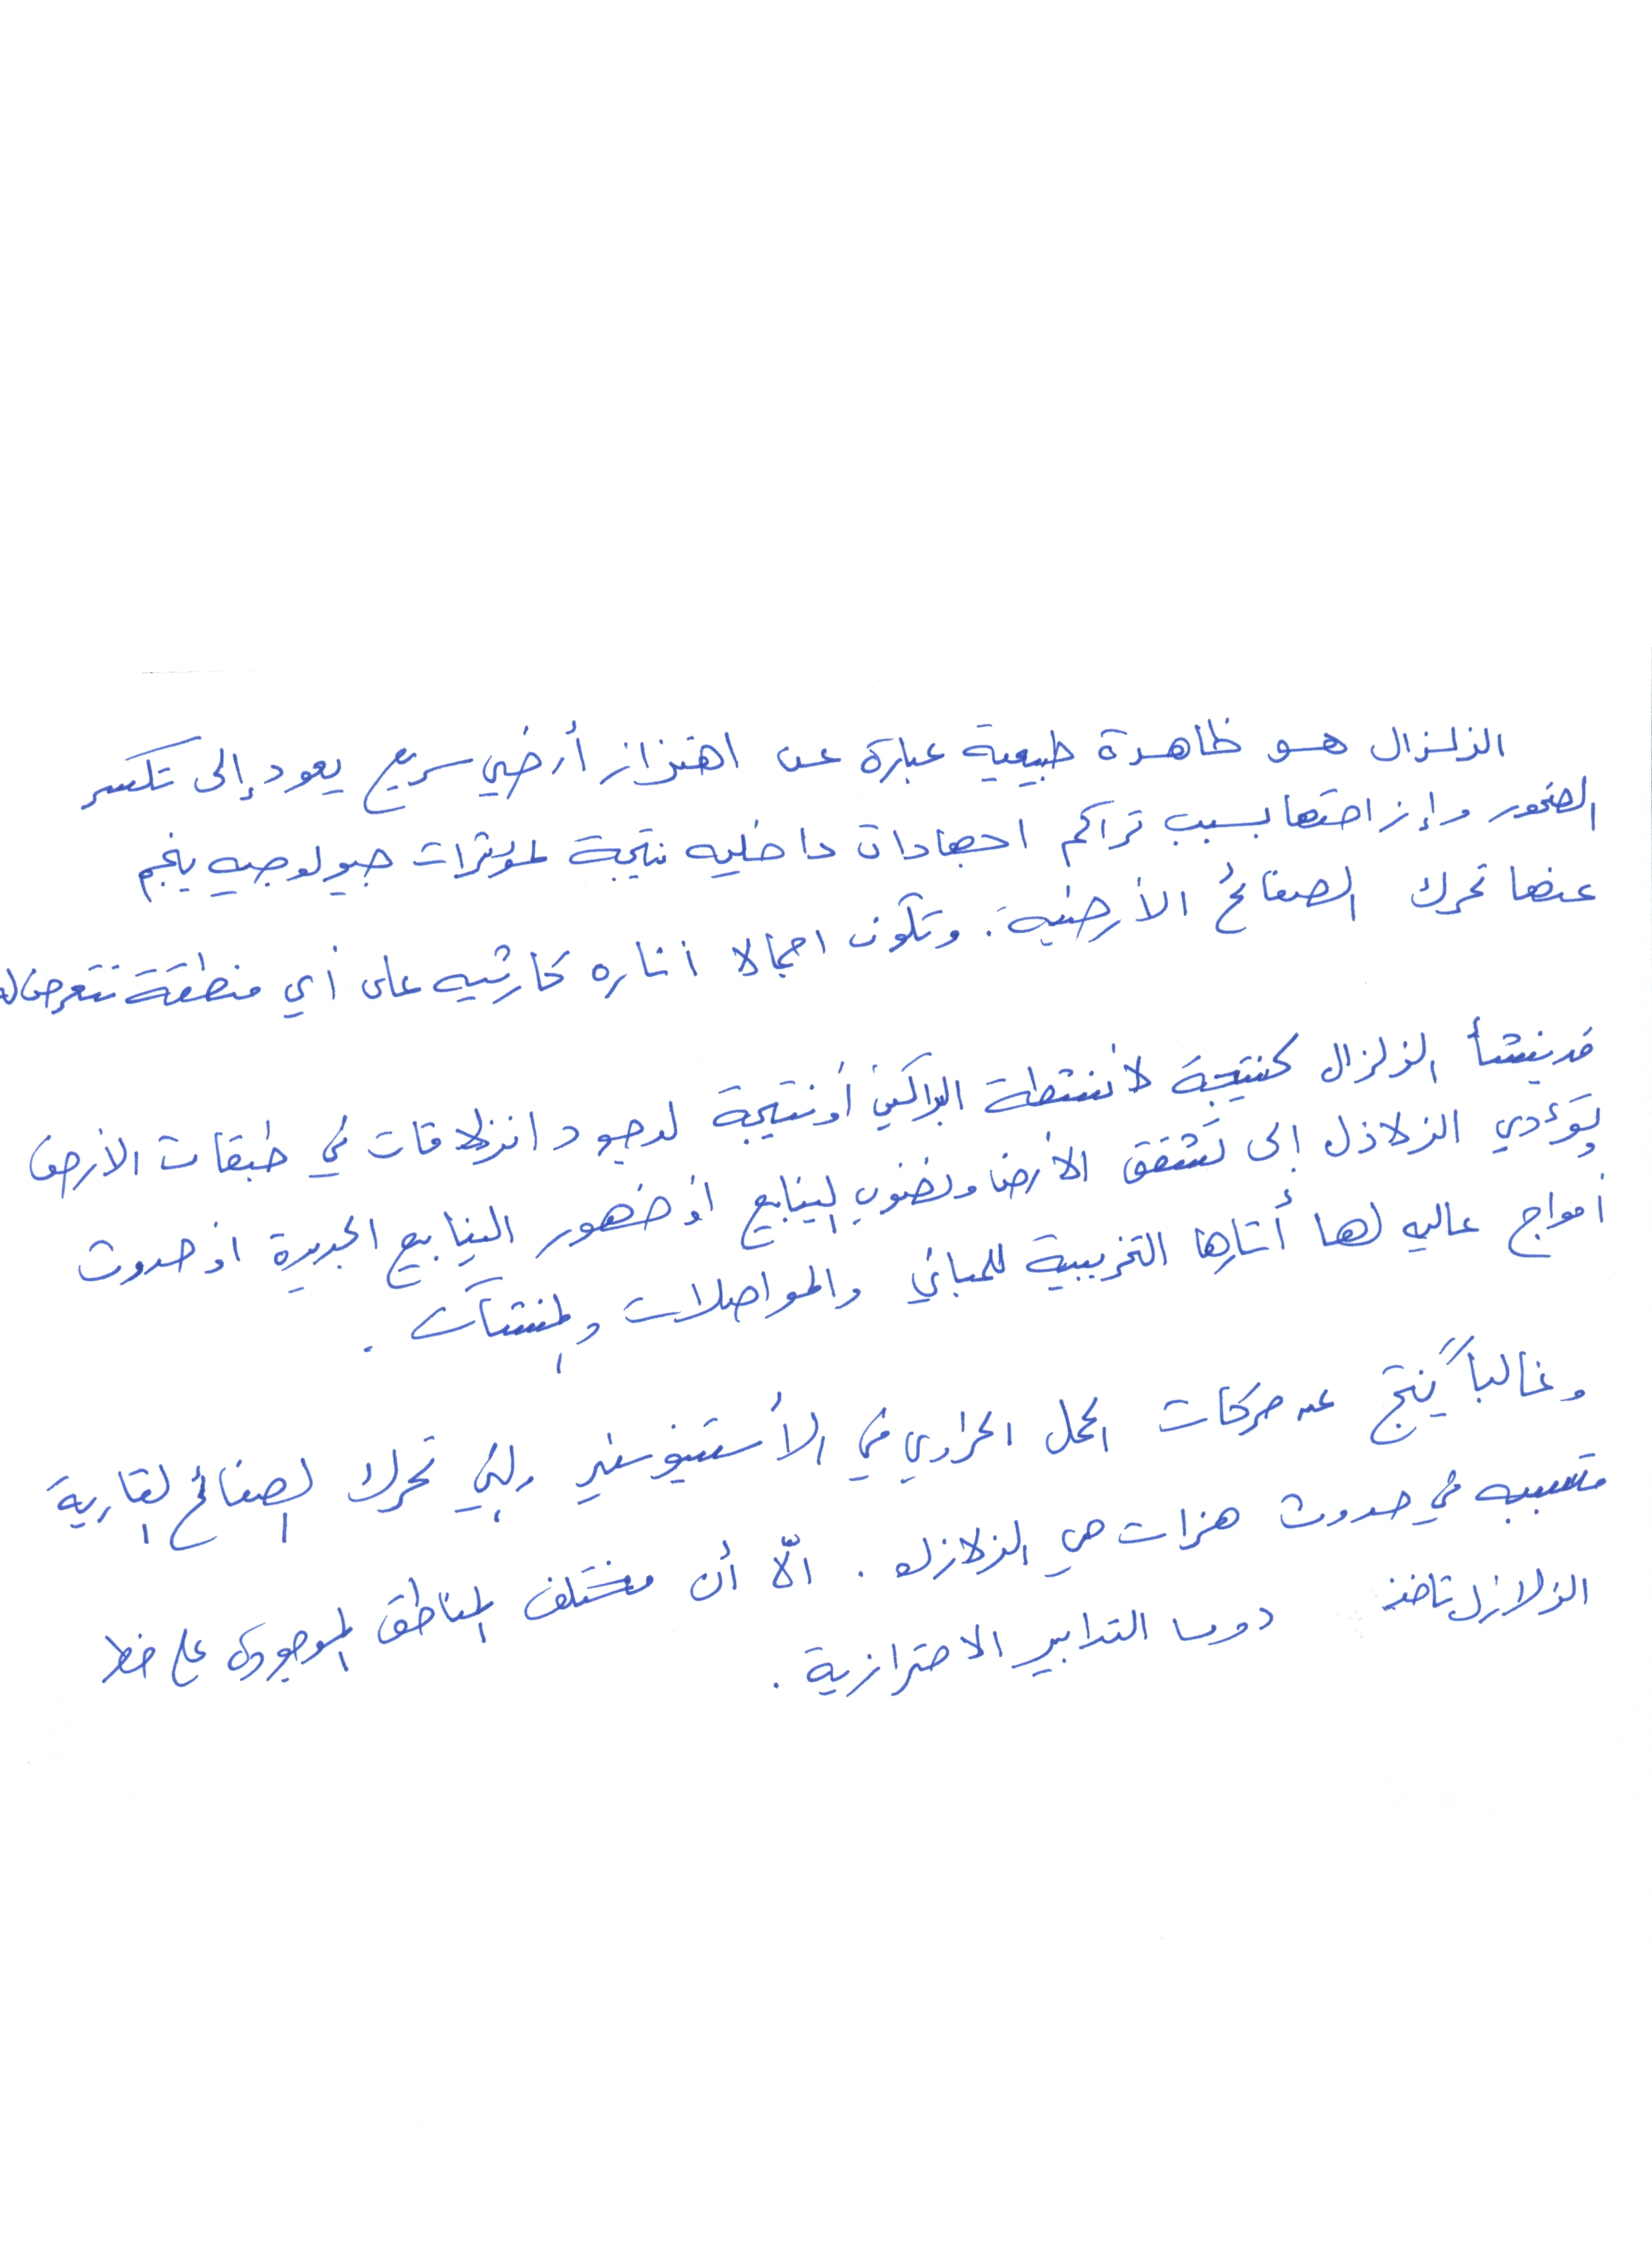 الزلزال هو ظاهرة طبيعية عبارة عن اهتزاز أرضي سريع يعود إلى تكسر
الصخور وإزاحتها بسبب تراكم اجهادات داخليه نتيجة لمؤثرات جيولوجيه ينجم
عنها تحرك الصفائح الأرضية. وتكون اجمالا أثاره كارثيه على أي منطقة تتعرض له
قد ينشأ الزلزال كنتيجة لأنشطة البراكين أو نتيجة لوجود انزلاقات في طبقات الأرض
وتؤدي الزلازل إلى تشقق الأرض ونضوب الينابيع أو ضهور الينابيع الجديدة أو حدوث
أمواج عاليه لها أثارها التخريبية للمباني والمواصلات والمنشآت .
وغالباً ينتج عن حركات الحمل الحراري في الأستينوسفير والتي تحرك الصفائح القارية
متسببه في حدوث هزات هي الزلازل . الّا أن مختلف المناطق الموجوده على خط
الزلازل تاخذ دوما التدابير الاحترازية .